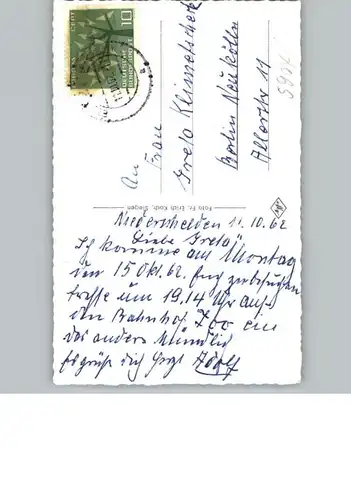 An
Frau
Greta Klimetschek
Berlin Neukölln
Allerstr 11
Foto Fr. Erich Koch, Siegen
Niederschelden 11.10.62
Liebe Greta
Ich komme am Montag
den 15 Okt. 62.
treffe um 19.14 Uhr auf
den Bahnhof Zoo ein
das andere Mündlich
Es grüßt dich Adolf
10